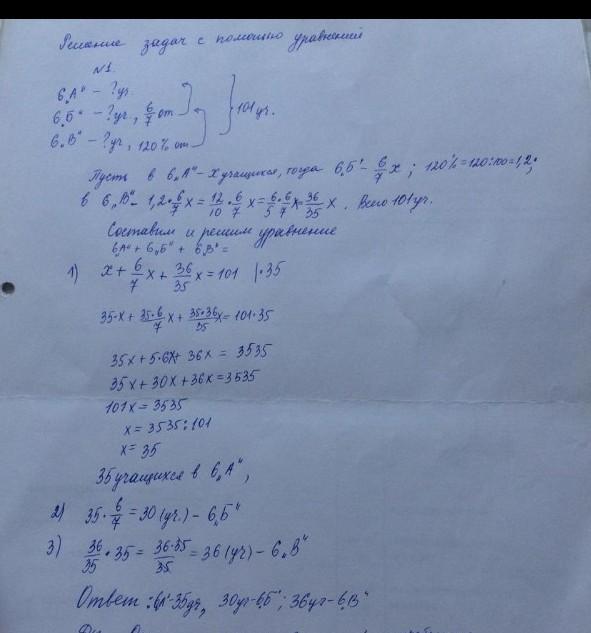 Решение задач с помощью уравнений
№1.
6„А" – ? уч.
6„Б" – ? уч., 6/7 от
6„В" – ? уч, 120% от
101 уч.
Пусть в 6„А" – х учащихся, тогда 6„Б" – 6/7 х ; 120% = 120:100 = 1,2;
в 6„В" – 1,2 · 6/7 х = 12/10 · 6/7 х = 6/5 · 6/7 х = 36/35 х . Всего 101 уч.
Составим и решим уравнение
6„А" + 6„Б" + 6„В" =
1) х + 6/7 х + 36/35 х = 101 | · 35
35·х + 35·6/7 х + 35·36/35 х = 101·35
35х + 5·6х + 36х = 3535
35х + 30х + 36х = 3535
101х = 3535
х = 3535:101
х = 35
35 учащихся в 6„А",
2) 35 · 6/7 = 30 (уч.) – 6„Б"
3) 36/35 · 35 = 36·35/35 = 36 (уч) – 6„В"
Ответ : 6„А"-35 уч, 30 уч-6„Б"; 36 уч-6„В"